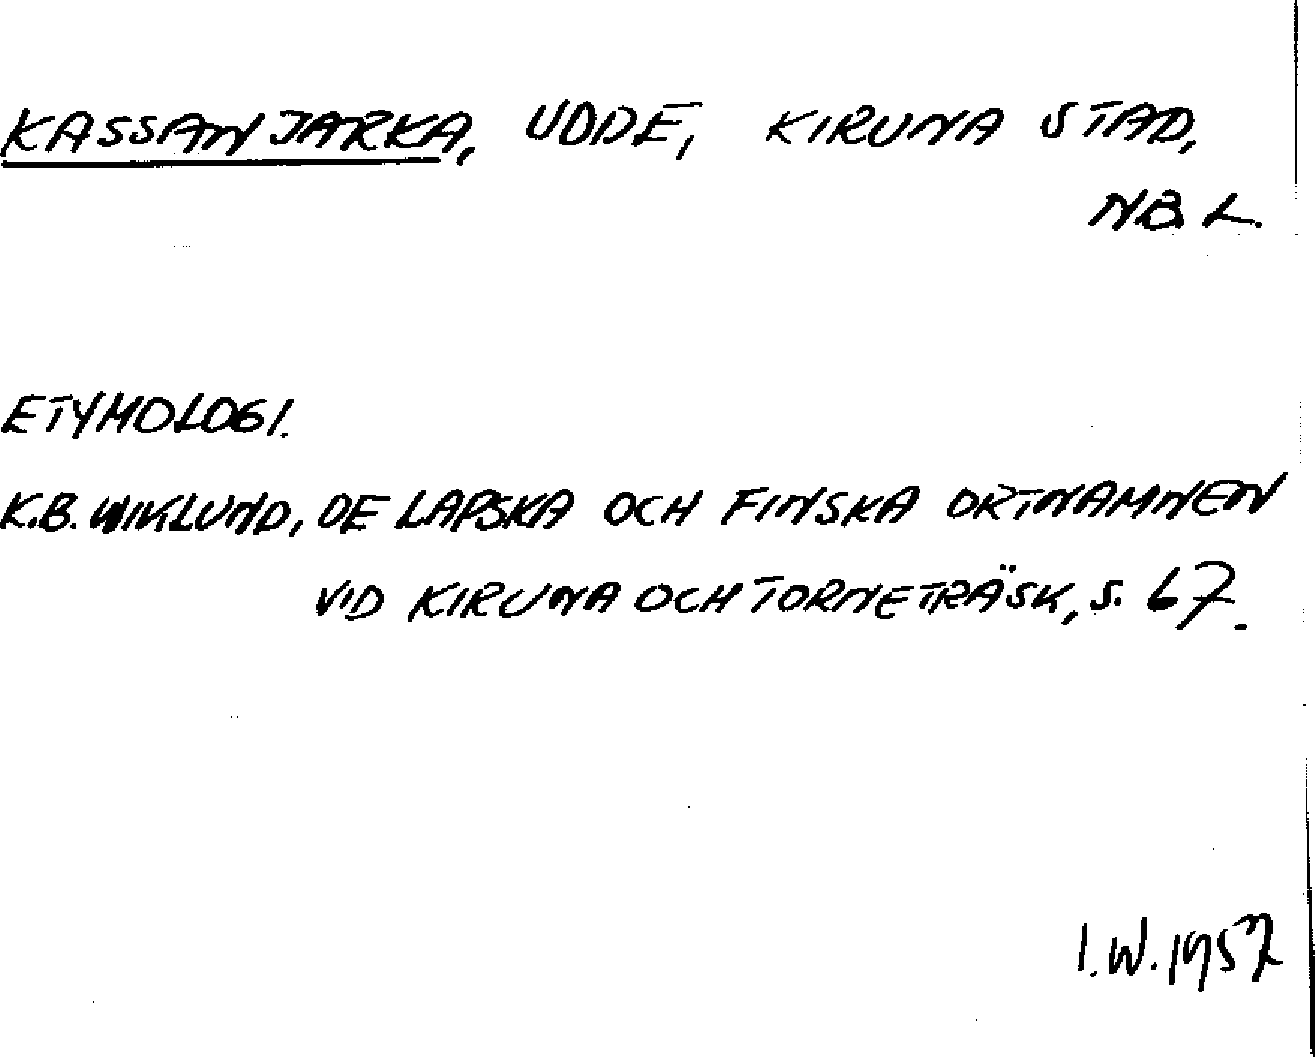 KASSANJARKA, UDDE, KIRUNA STAD,
NB L.
ETYMOLOGI.
K.B. WIKLUND, DE LAPSKA OCH FINSKA ORTNAMNEN
VID KIRUNA OCH TORNETRÄSK, S. 67.
I.W. 1957